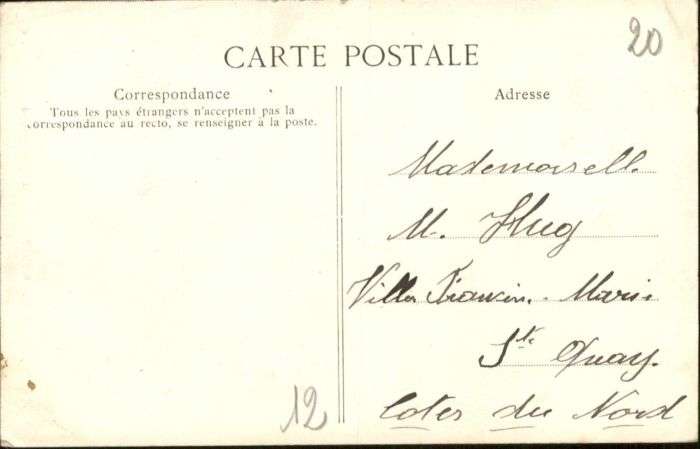 20
CARTE POSTALE
Correspondance
Tous les pays étrangers n'acceptent pas la
correspondance au recto, se renseigner à la poste.
Adresse
Mademoiselle
M. Hug
Villa Francin. Marie
St. Quay.
Cotes du Nord
12